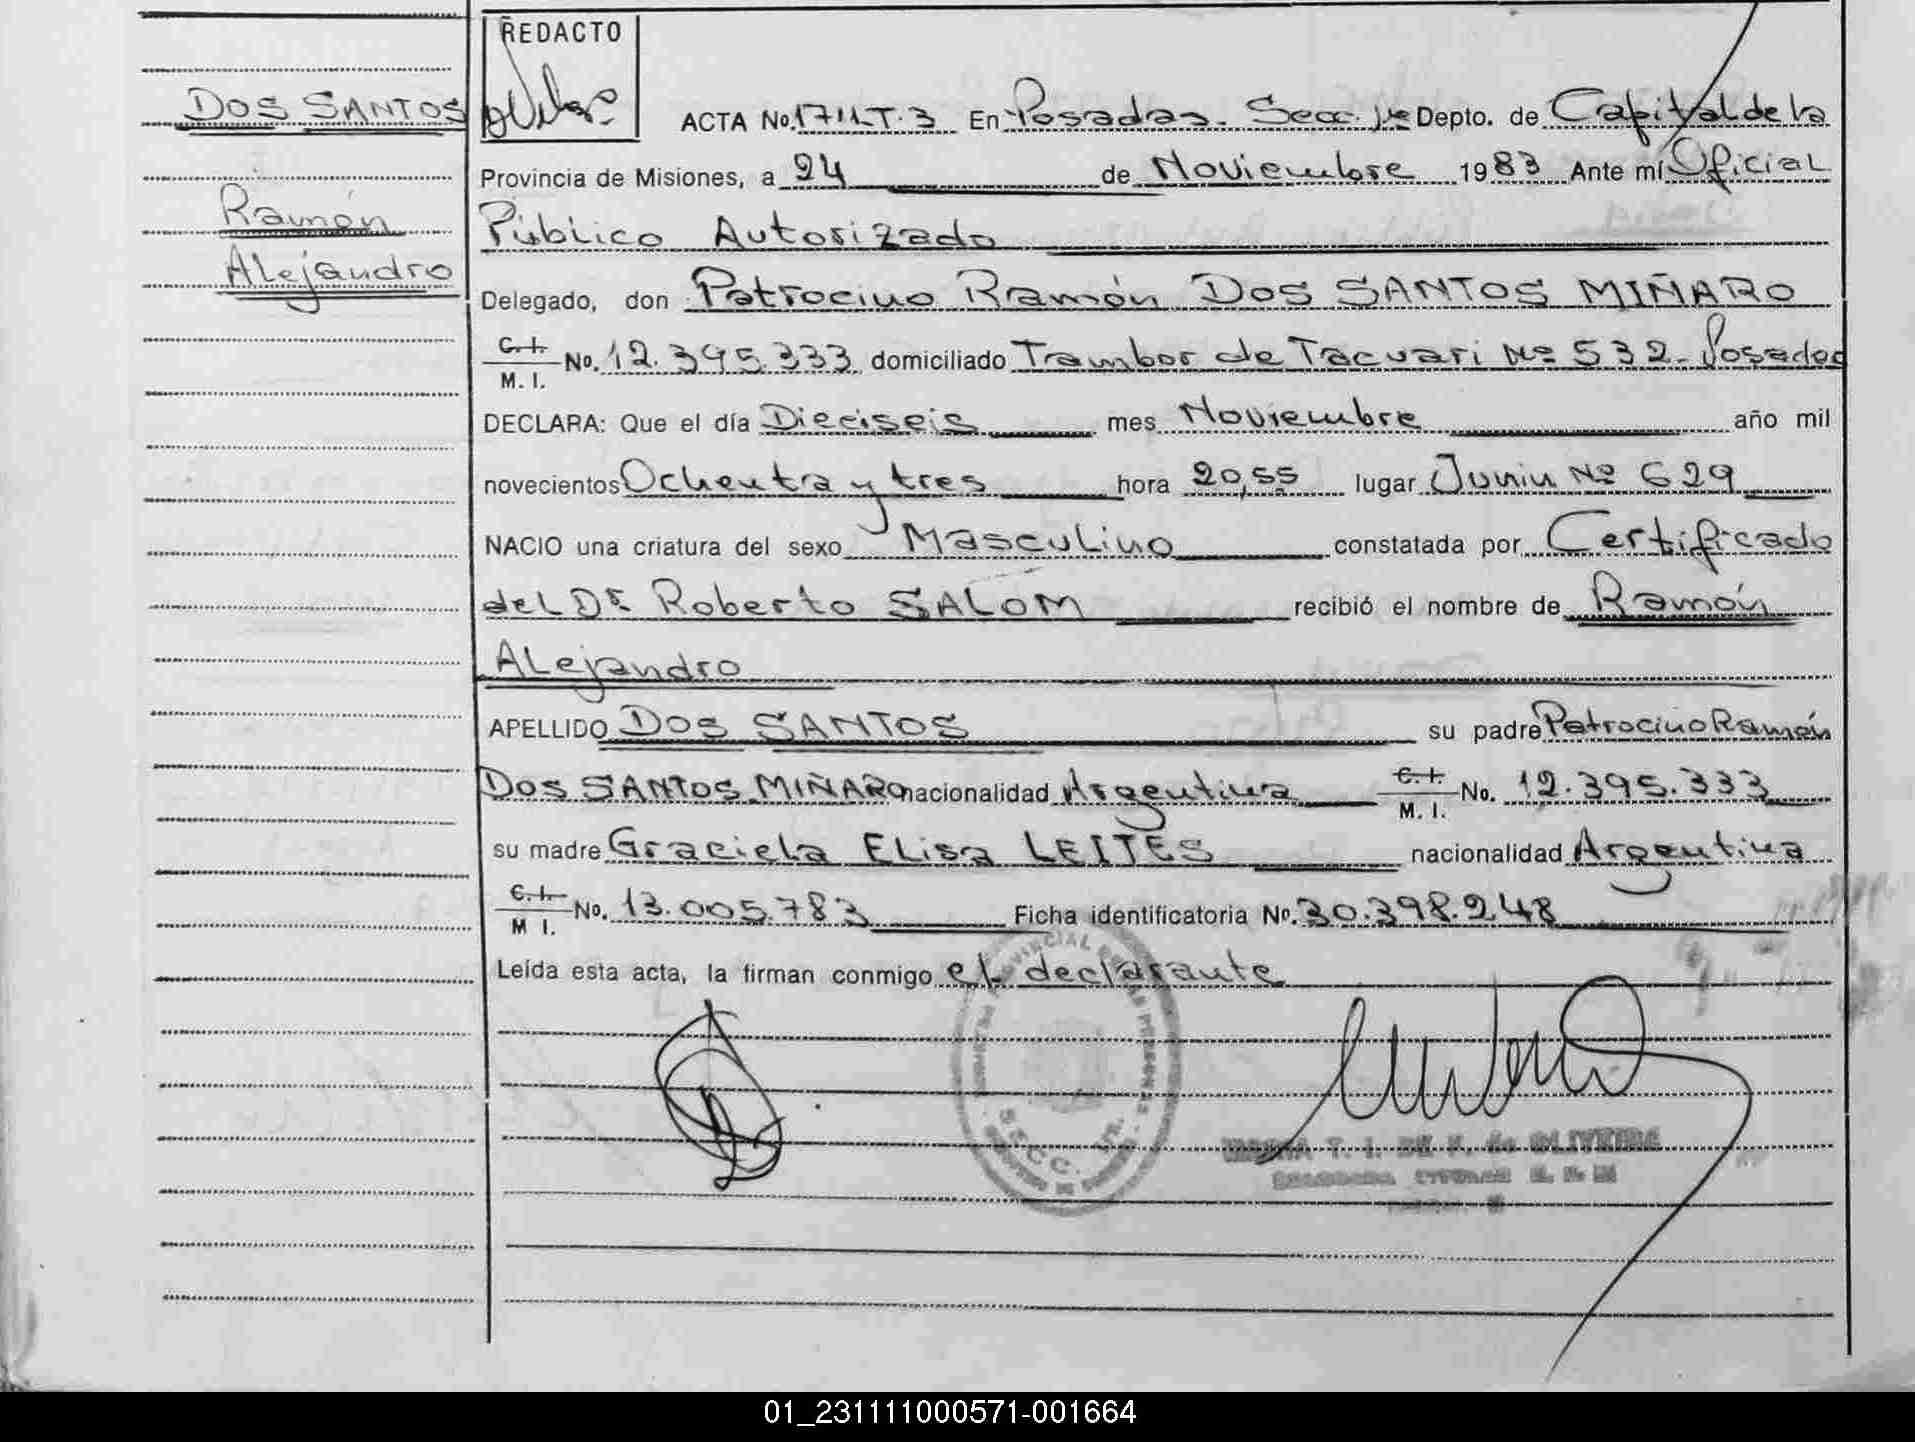 REDACTO
DOS SANTOS
Ramón
Alejandro
ACTA No. T.3 En Posadas. Secc. 1ra Depto. de Capital de la
Provincia de Misiones, a 24 de Noviembre 1983 Ante mí Oficial
Público Autorizado
Delegado, don Patrocino Ramón DOS SANTOS MIÑARO
C.I. M.I. No. 12.395.333 domiciliado Tambor de Tacuari Nº 532 - Posadas
DECLARA: Que el día Dieciseis mes Noviembre año mil
novecientos Ochenta y tres hora 20,55 lugar Junin Nº 629
NACIO una criatura del sexo Masculino constatada por Certificado
del Dr. Roberto SALOM recibió el nombre de Ramón
Alejandro
APELLIDO DOS SANTOS su padre Patrocino Ramón
DOS SANTOS MIÑARO nacionalidad Argentina C.I. M.I. No. 12.395.333
su madre Graciela Elisa LEITES nacionalidad Argentina
C.I. M I. No. 13.005.783 Ficha identificatoria No. 30.398.248
Leída esta acta, la firman conmigo el declarante
PROVINCIAL DE LAS PERSONAS
T. I. DE de OLIVEIRA
01_231111000571-001664